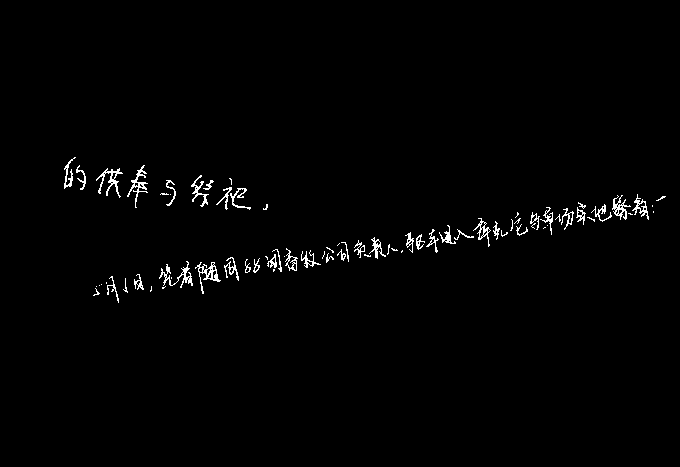 的供奉与祭祀,
5月1日,笔者随同88网畜牧公司负责人,驱车进入库尔它乐草场实地察看:一